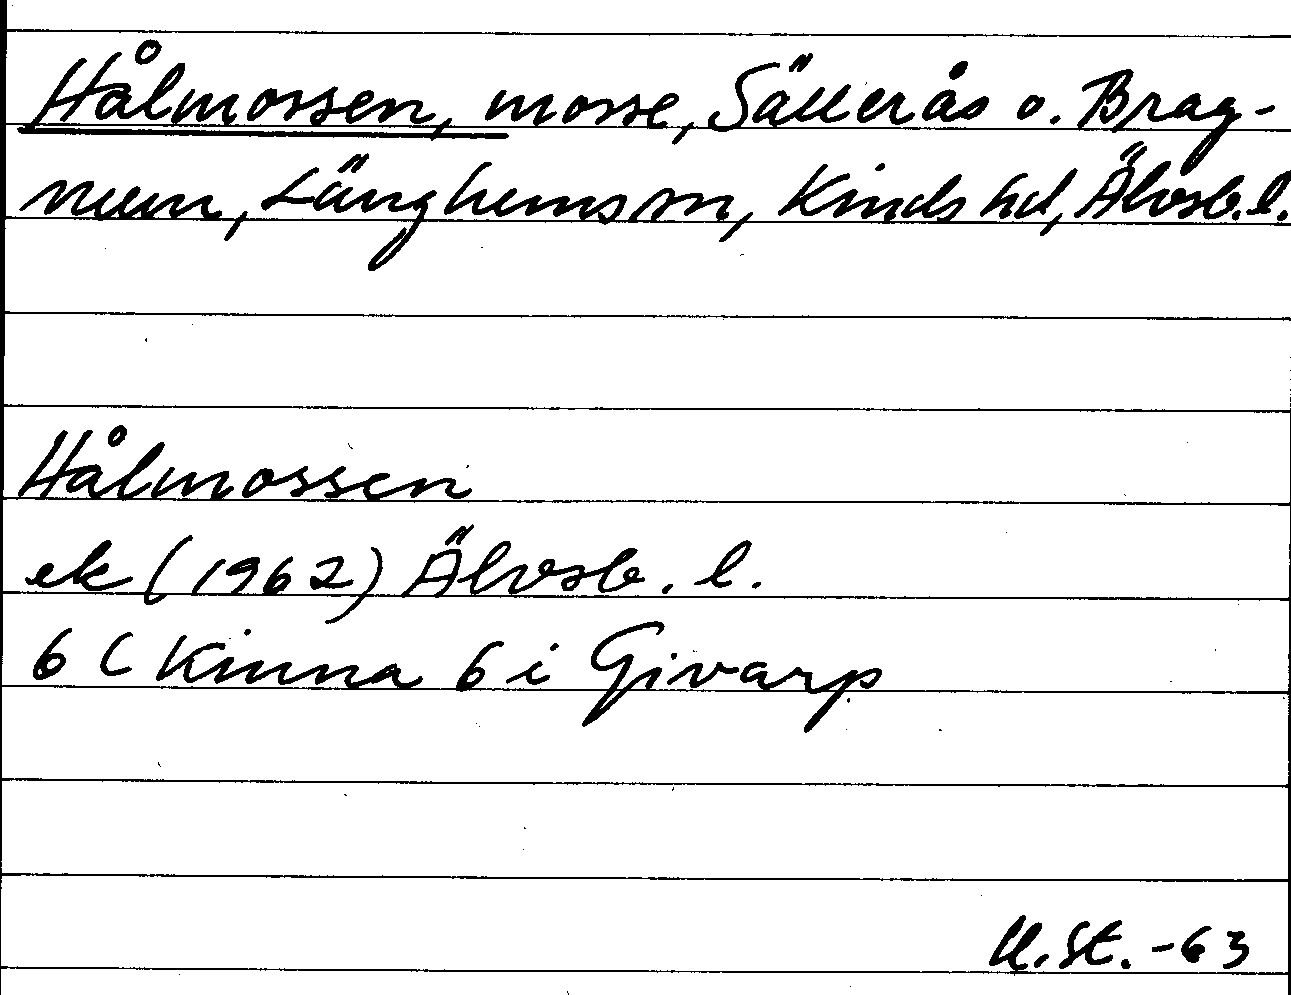 Hålmossen, mosse, Sällerås o. Brag-
num, Länghems sn, Kinds hd, Älvsb. l.
Hålmossen
ek (1962) Älvsb. l.
6 C Kinna 6 i Givarp
U. St. -63